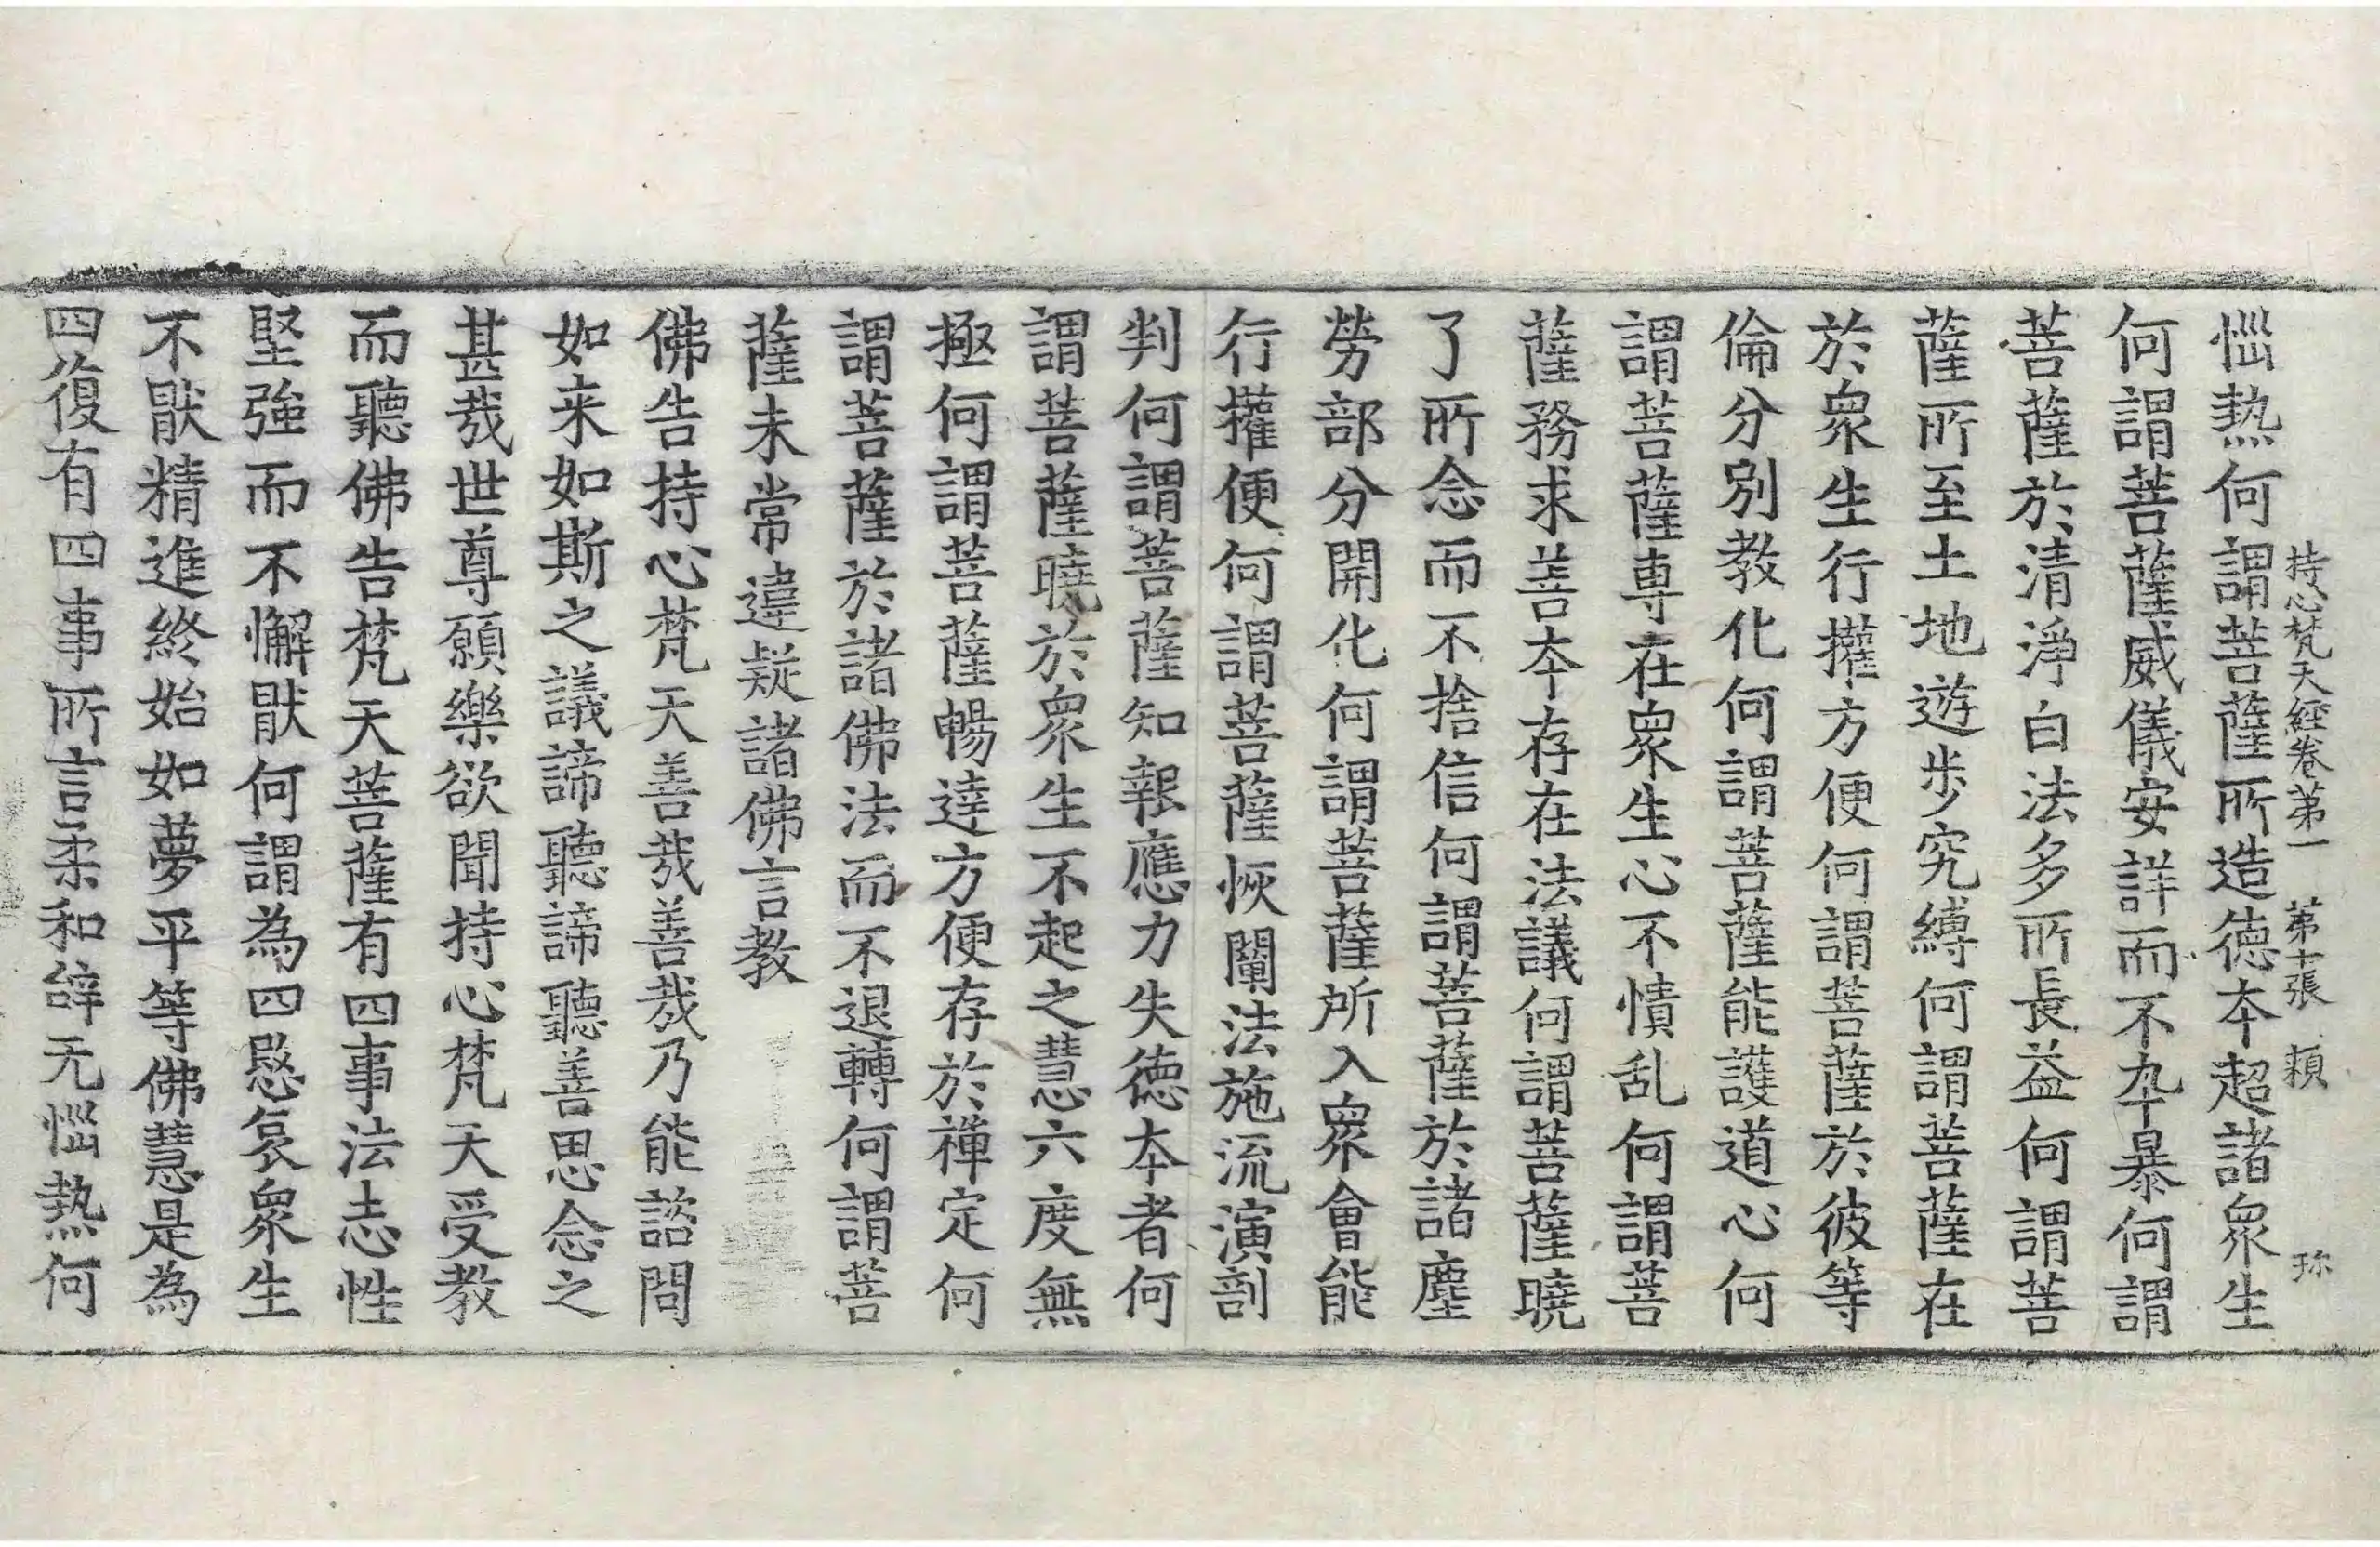 持心梵天經卷第一 第十張 頼 珎
惱熱何謂菩薩所造德夲超諸衆生
何謂菩薩威儀安詳而不卒暴何謂
菩薩於清淨白法多所長益何謂菩
薩所至土地遊步究縛何謂菩薩在
於衆生行權方便何謂菩薩於彼等
倫分別教化何謂菩薩能護道心何
謂菩薩専在衆生心不憒乱何謂菩
薩務求善夲存在法議何謂菩薩曉
了所念而不捨信何謂菩薩於諸塵
勞部分開化何謂菩薩所入衆會能
行權便何謂菩薩恢闡法施流演剖
判何謂菩薩知報應力失德夲者何
謂菩薩曉於衆生不起之慧六度無
極何謂菩薩暢達方便存於禪定何
謂菩薩於諸佛法而不退轉何謂菩
薩未常違疑諸佛言教
佛告持心梵天善哉善哉乃能諮問
如来如斯之議諦聽諦聽善思念之
甚哉世尊願樂欲聞持心梵天受教
而聽佛告梵天菩薩有四事法志性
堅強而不懈猒何謂為四愍哀衆生
不猒精進終始如夢平等佛慧是為
四復有四事所言柔和辝无惱熱何